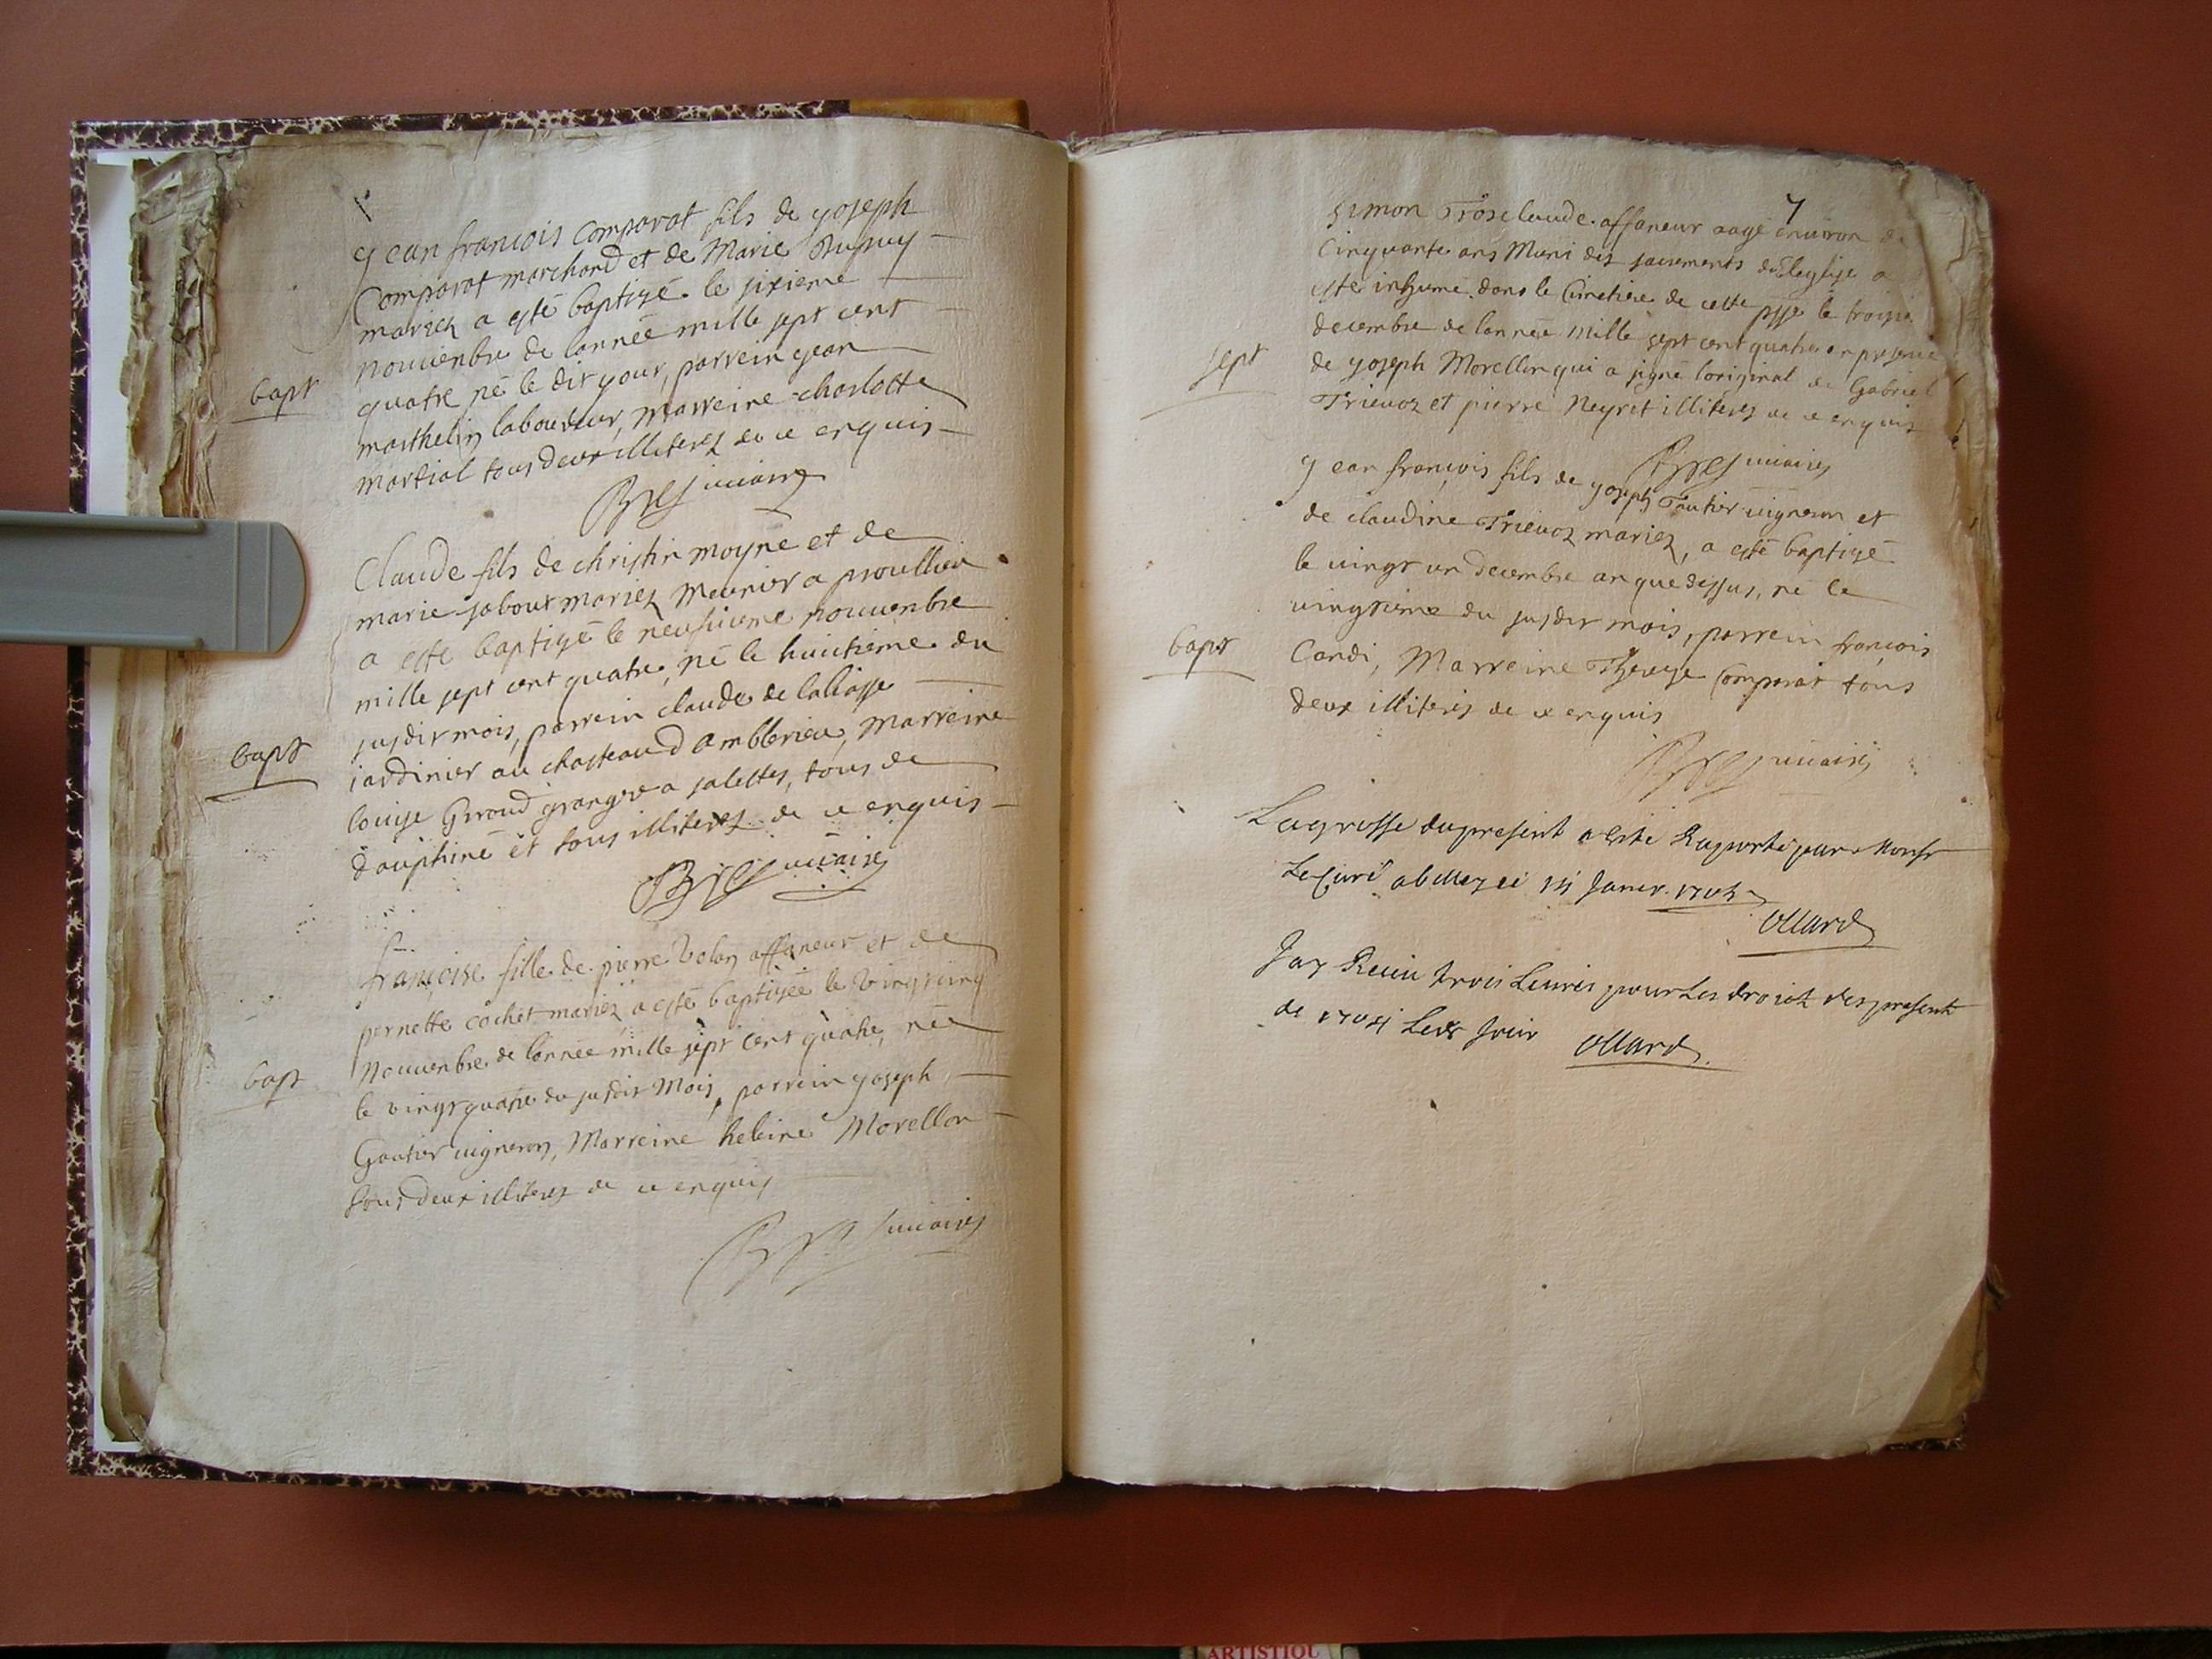 Jean francois Comparat fils de yoseph
Comparat marchand et de Marie Dupuy
mariez a esté baptizé le sixieme
nouuenbre de lannée mille sept cent
bapt
quatre né le dit your, parrein jean
marthelin laboureur, Marreine charlotte
martial tous deux illiterez de ce enquis
uicaire
Claude fils de christin moyne et de
marie jabour mariez Meunier a proullieu
a esté baptizé le neufuieme nouuenbre
mille sept cent quatre, né le huitieme du
bapt
susdit mois, parrein claude de labasse
jardinier au chasteau d amblerieu, Marreine
louise Giroud grangere a salettes, tous de
dauphiné et tous illiterez de ce enquis
uicaire
francoise fille de pierre Volan affaneur et de
pernette cochet mariez a esté baptizée le vingtcinq
Nouuenbre de lannée mille sept cent quatre, née
bapt
le vingtquatre du susdit Mois, parrein yoseph
Gautier uigneron, Marreine heleine Morellon
tous deux illiterez de ce enquis
uicaire
7
Simon Troseclaude affaneur aagé enuiron de
Cinquante ans Muni des sacrements de Leglise a
esté inhumé dans le Cimetiere de cette psse le troisie
decembre de lannée mille sept cent quatre en presence
sept
de yoseph Morellon qui a signé loriginal de Gabriel
Trieuoz et pierre Neyret illiterez de ce enquis
uicaire
Jean francois fils de yoseph Gautier uigneron et
de claudine Trieuoz mariez, a esté baptizé
le uingt un decembre an que dessus, né le
uingtieme du susdit mois, parrein francois
bapt
Candi, Marreine Therese Comparat tous
deux illiterés de ce enquis
uicaire
La grosse du present a esté Raporté par Monsr
Le Curé Janer.
ollard
Jay Receu trois Liures pour Les droict des present
de Jour ollard
ARTISTIQU